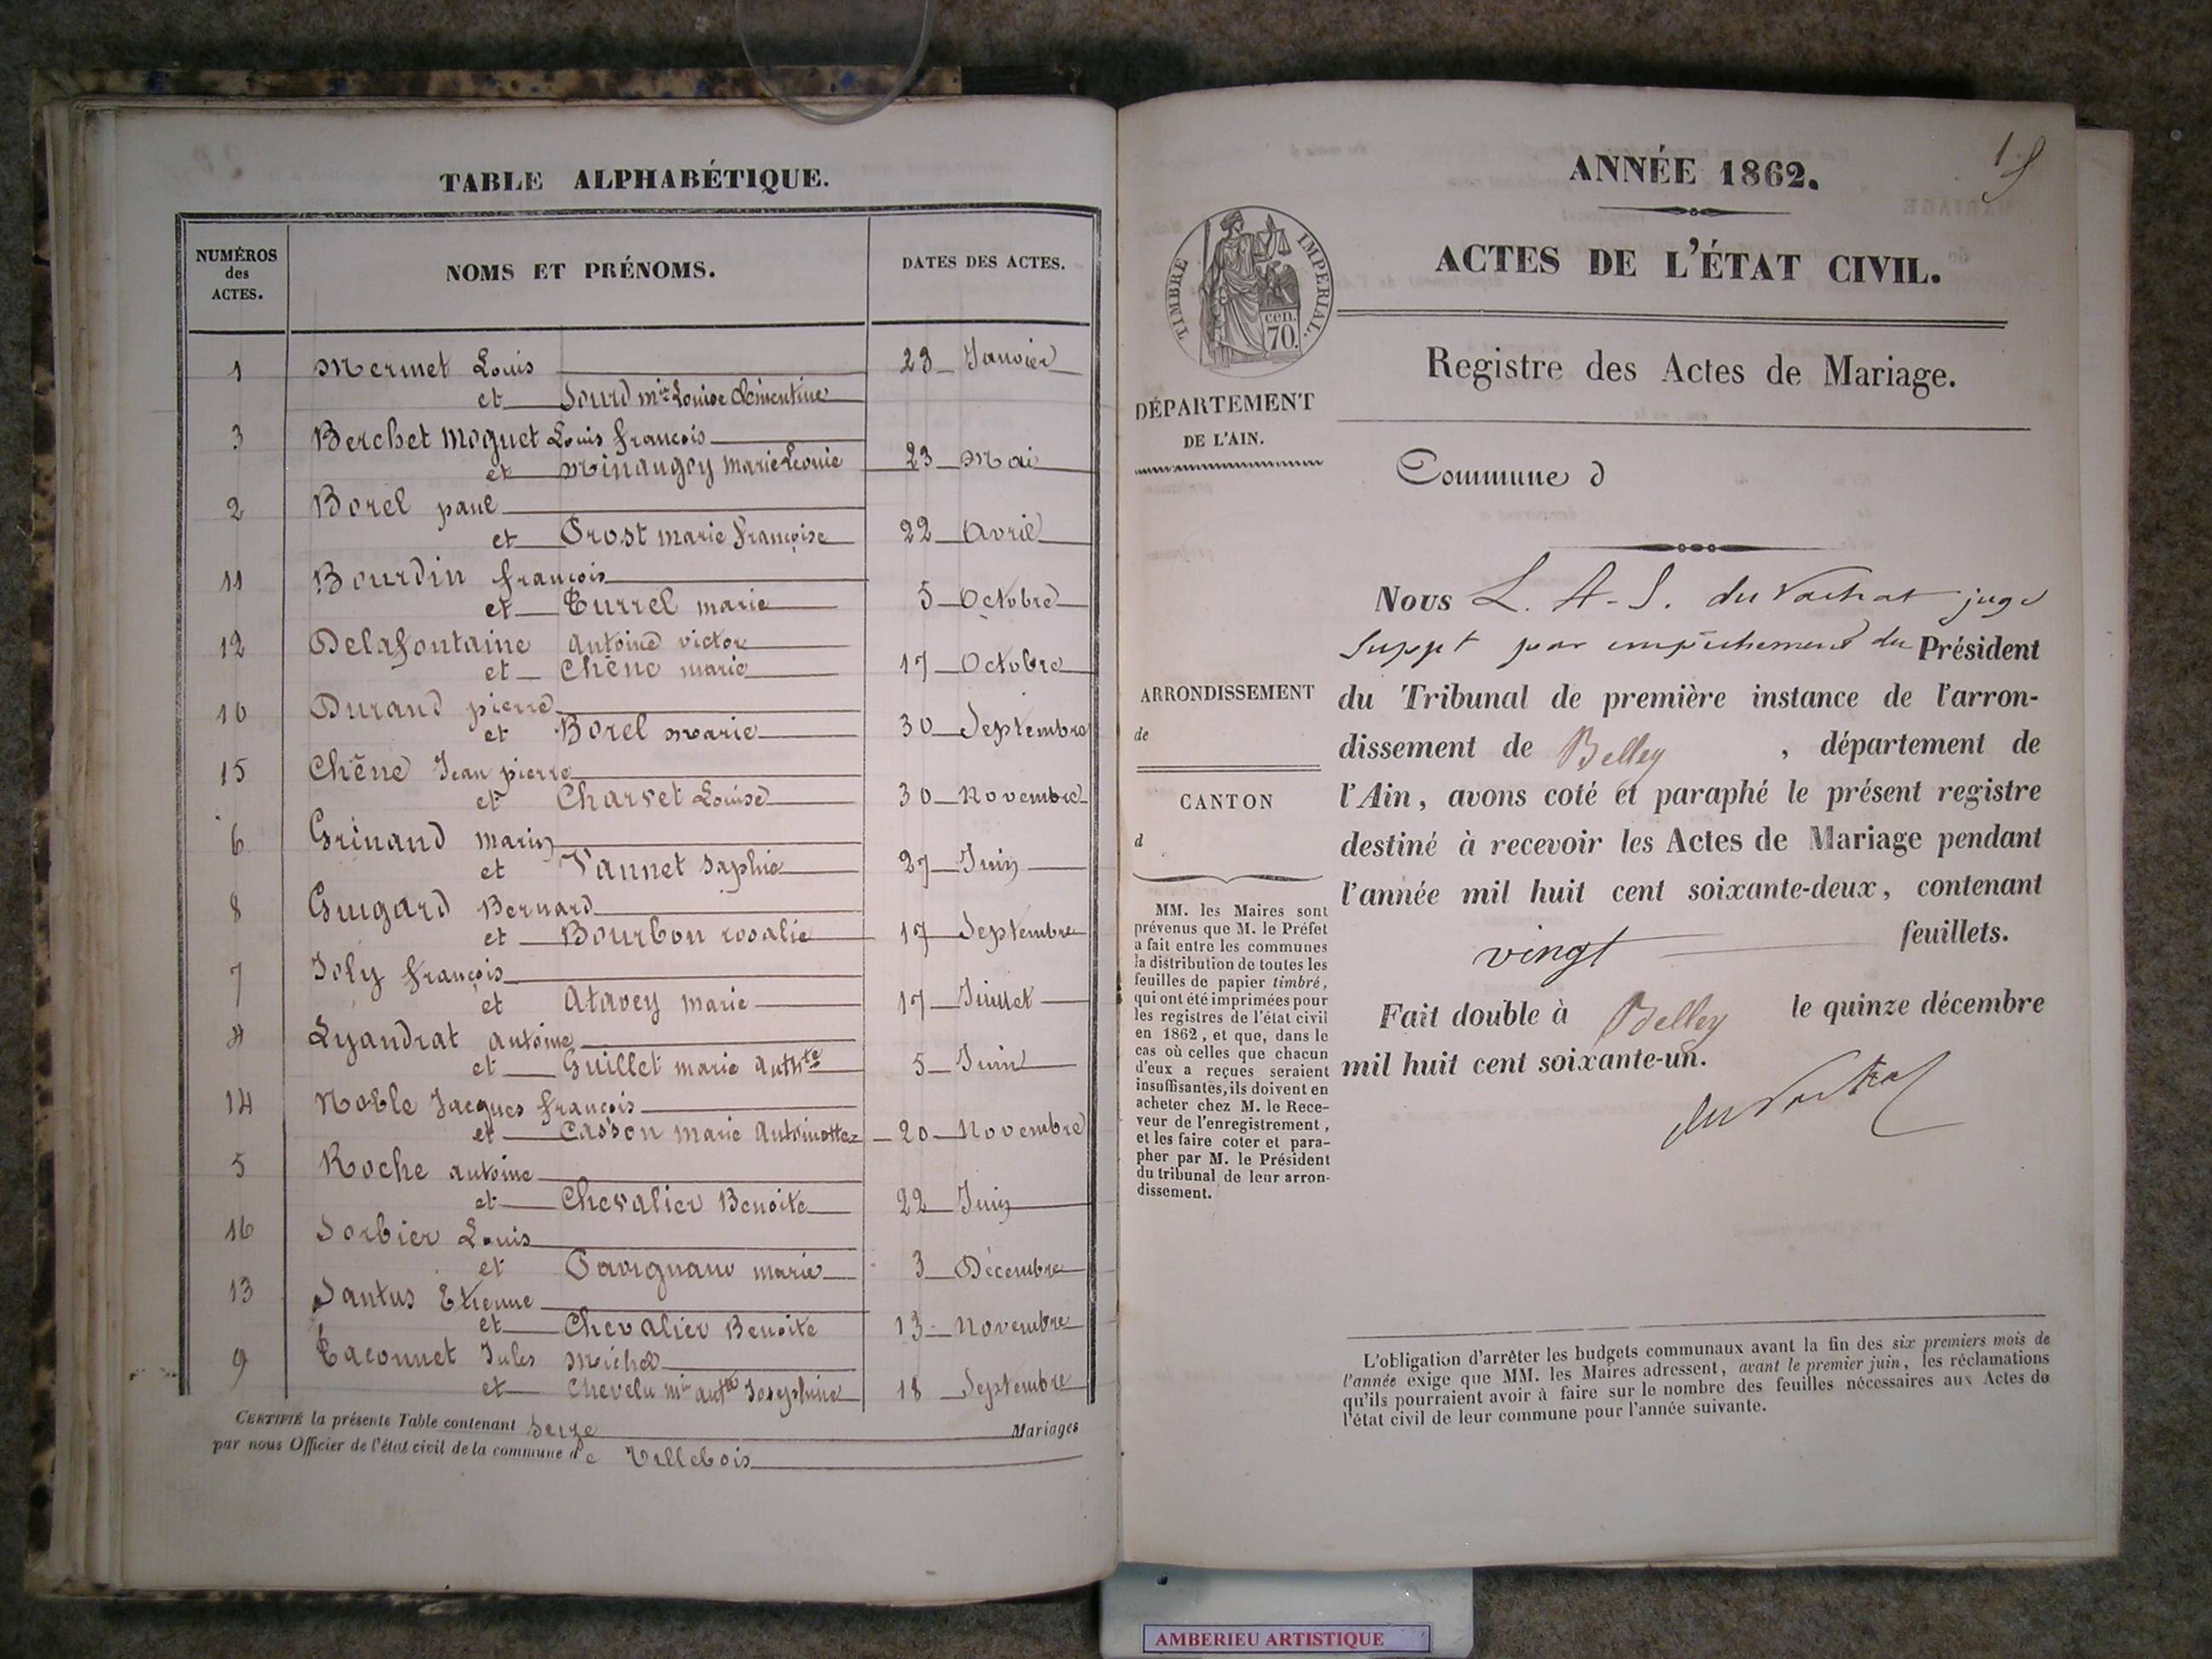 TABLE ALPHABÉTIQUE.
NUMÉROS des ACTES.
NOMS ET PRÉNOMS.
DATES DES ACTES.
1 Mermet Louis
et Sourd mie Louise Clémentine 23 Janvier
3 Berchet Moguet Louis françois
et Minaugoy marie Leonie 23 Mai
2 Borel paul
et Prost marie françoise 22 Avril
11 Bourdin françois
et Turrel marie 5 Octobre
12 Delafontaine Antoine victor
et Chêne marie 17 Octobre
10 Durand pierre
et Borel marie 30 Septembre
15 Chêne Jean pierre
et Charvet Louise 30 Novembre
6 Grinand marin
et Vannet Sophie 27 Juin
8 Guigard Bernard
et Bourbon rosalie 17 Septembre
7 Joly françois
et Atavey marie 17 Juillet
4 Lyandrat antoine
et Guillet marie Anthte 5 Juin
14 Noble Jacques françois
et Casson Marie Antoinette 20 Novembre
5 Roche antoine
et Chevalier Benoite 22 Juin
16 Sorbier Louis
et Pavignano marie 3 Décembre
13 Santus Etienne
et Chevalier Benoite 13 Novembre
9 Taconnet Jules Michel
et Chevelu mie antte Josephine 18 Septembre
CERTIFIÉ la présente Table contenant Seize Mariages
par nous Officier de l'état civil de la commune de Villebois
ANNÉE 1862.
ACTES DE L'ÉTAT CIVIL.
TIMBRE IMPÉRIAL.
cen.
70.
Registre des Actes de Mariage.
DÉPARTEMENT
DE L'AIN.
Commune d
Nous L. A-S. du Vachat juge
suppt par empêchement du Président
ARRONDISSEMENT
de
du Tribunal de première instance de l'arron-
dissement de Belley, département de
l'Ain, avons coté et paraphé le présent registre
CANTON
d
destiné à recevoir les Actes de Mariage pendant
l'année mil huit cent soixante-deux, contenant
vingt feuillets.
Fait double à Belley le quinze décembre
mil huit cent soixante-un.
du Vachat
MM. les Maires sont
prévenus que M. le Préfet
a fait entre les communes
la distribution de toutes les
feuilles de papier timbré,
qui ont été imprimées pour
les registres de l'état civil
en 1862, et que, dans le
cas où celles que chacun
d'eux a reçues seraient
insuffisantes, ils doivent en
acheter chez M. le Rece-
veur de l'enregistrement,
et les faire coter et para-
pher par M. le Président
du tribunal de leur arron-
dissement.
L'obligation d'arrêter les budgets communaux avant la fin des six premiers mois de
l'année exige que MM. les Maires adressent, avant le premier juin, les réclamations
qu'ils pourraient avoir à faire sur le nombre des feuilles nécessaires aux Actes de
l'état civil de leur commune pour l'année suivante.
AMBERIEU ARTISTIQUE